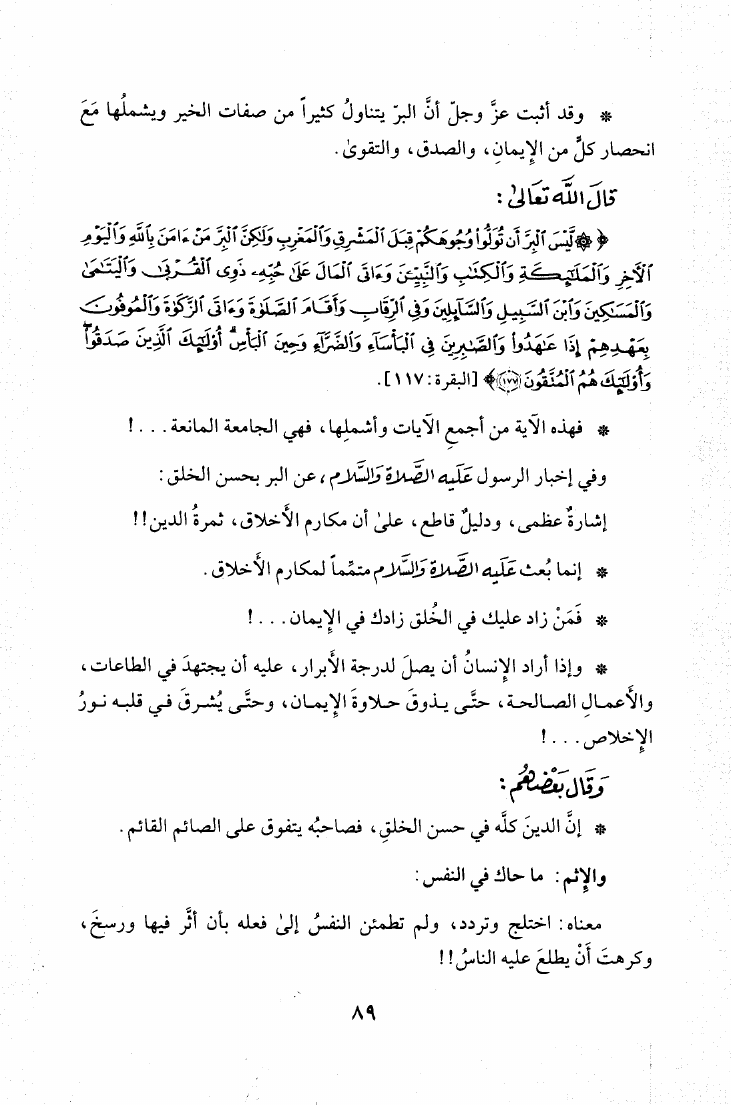 * وقد أثبت عزَّ وجلّ أنَّ البرّ يتناولُ كثيراً من صفات الخير ويشملُها مَعَ
انحصار كلٍّ من الإِيمانِ، والصدق، والتقوىٰ.
قَالَ اللَّه تَعَالىٰ:
﴿ ۞ لَّيْسَ ٱلْبِرَّ أَن تُوَلُّوا۟ وُجُوهَكُمْ قِبَلَ ٱلْمَشْرِقِ وَٱلْمَغْرِبِ وَلَٰكِنَّ ٱلْبِرَّ مَنْ ءَامَنَ بِٱللَّهِ وَٱلْيَوْمِ
ٱلْأَخِرِ وَٱلْمَلَٰٓئِكَةِ وَٱلْكِتَٰبِ وَٱلنَّبِيِّۦنَ وَءَاتَى ٱلْمَالَ عَلَىٰ حُبِّهِۦ ذَوِى ٱلْقُرْبَىٰ وَٱلْيَتَٰمَىٰ
وَٱلْمَسَٰكِينَ وَٱبْنَ ٱلسَّبِيلِ وَٱلسَّآئِلِينَ وَفِى ٱلرِّقَابِ وَأَقَامَ ٱلصَّلَوٰةَ وَءَاتَى ٱلزَّكَوٰةَ وَٱلْمُوفُونَ
بِعَهْدِهِمْ إِذَا عَٰهَدُوا۟ وَٱلصَّٰبِرِينَ فِى ٱلْبَأْسَآءِ وَٱلضَّرَّآءِ وَحِينَ ٱلْبَأْسِ أُو۟لَٰٓئِكَ ٱلَّذِينَ صَدَقُوا۟
وَأُو۟لَٰٓئِكَ هُمُ ٱلْمُتَّقُونَ ١٧٧ ﴾ [البقرة: ١١٧].
* فهذه الآية من أجمعِ الآيات وأشملِها، فهي الجامعة المانعة...!
وفي إخبار الرسول عَلَيه الصَّلاة وَالسَّلام، عن البر بحسن الخلق:
إشارةٌ عظمى، ودليلٌ قاطع، علىٰ أن مكارم الأَخلاق، ثمرةُ الدين!!
* إنما بُعث عَلَيه الصَّلاة وَالسَّلام متمِّماً لمكارم الأَخلاق.
* فَمَنْ زاد عليك في الخُلق زادك في الإِيمان...!
* وإذا أراد الإِنسانُ أن يصلَ لدرجة الأَبرار، عليه أن يجتهدَ في الطاعات،
والأَعمالِ الصالحة، حتَّى يذوقَ حلاوةَ الإِيمان، وحتَّى يُشرقَ في قلبه نورُ
الإِخلاص...!
وَقَال بَعْضهُم:
* إنَّ الدينَ كلَّه في حسن الخلقِ، فصاحبُه يتفوق على الصائم القائم.
والإِثم: ما حاك في النفس:
معناه: اختلج وتردد، ولم تطمئن النفسُ إلىٰ فعله بأن أثَّر فيها ورسخَ،
وكرهتَ أَنْ يطلعَ عليه الناسُ!!
٨٩